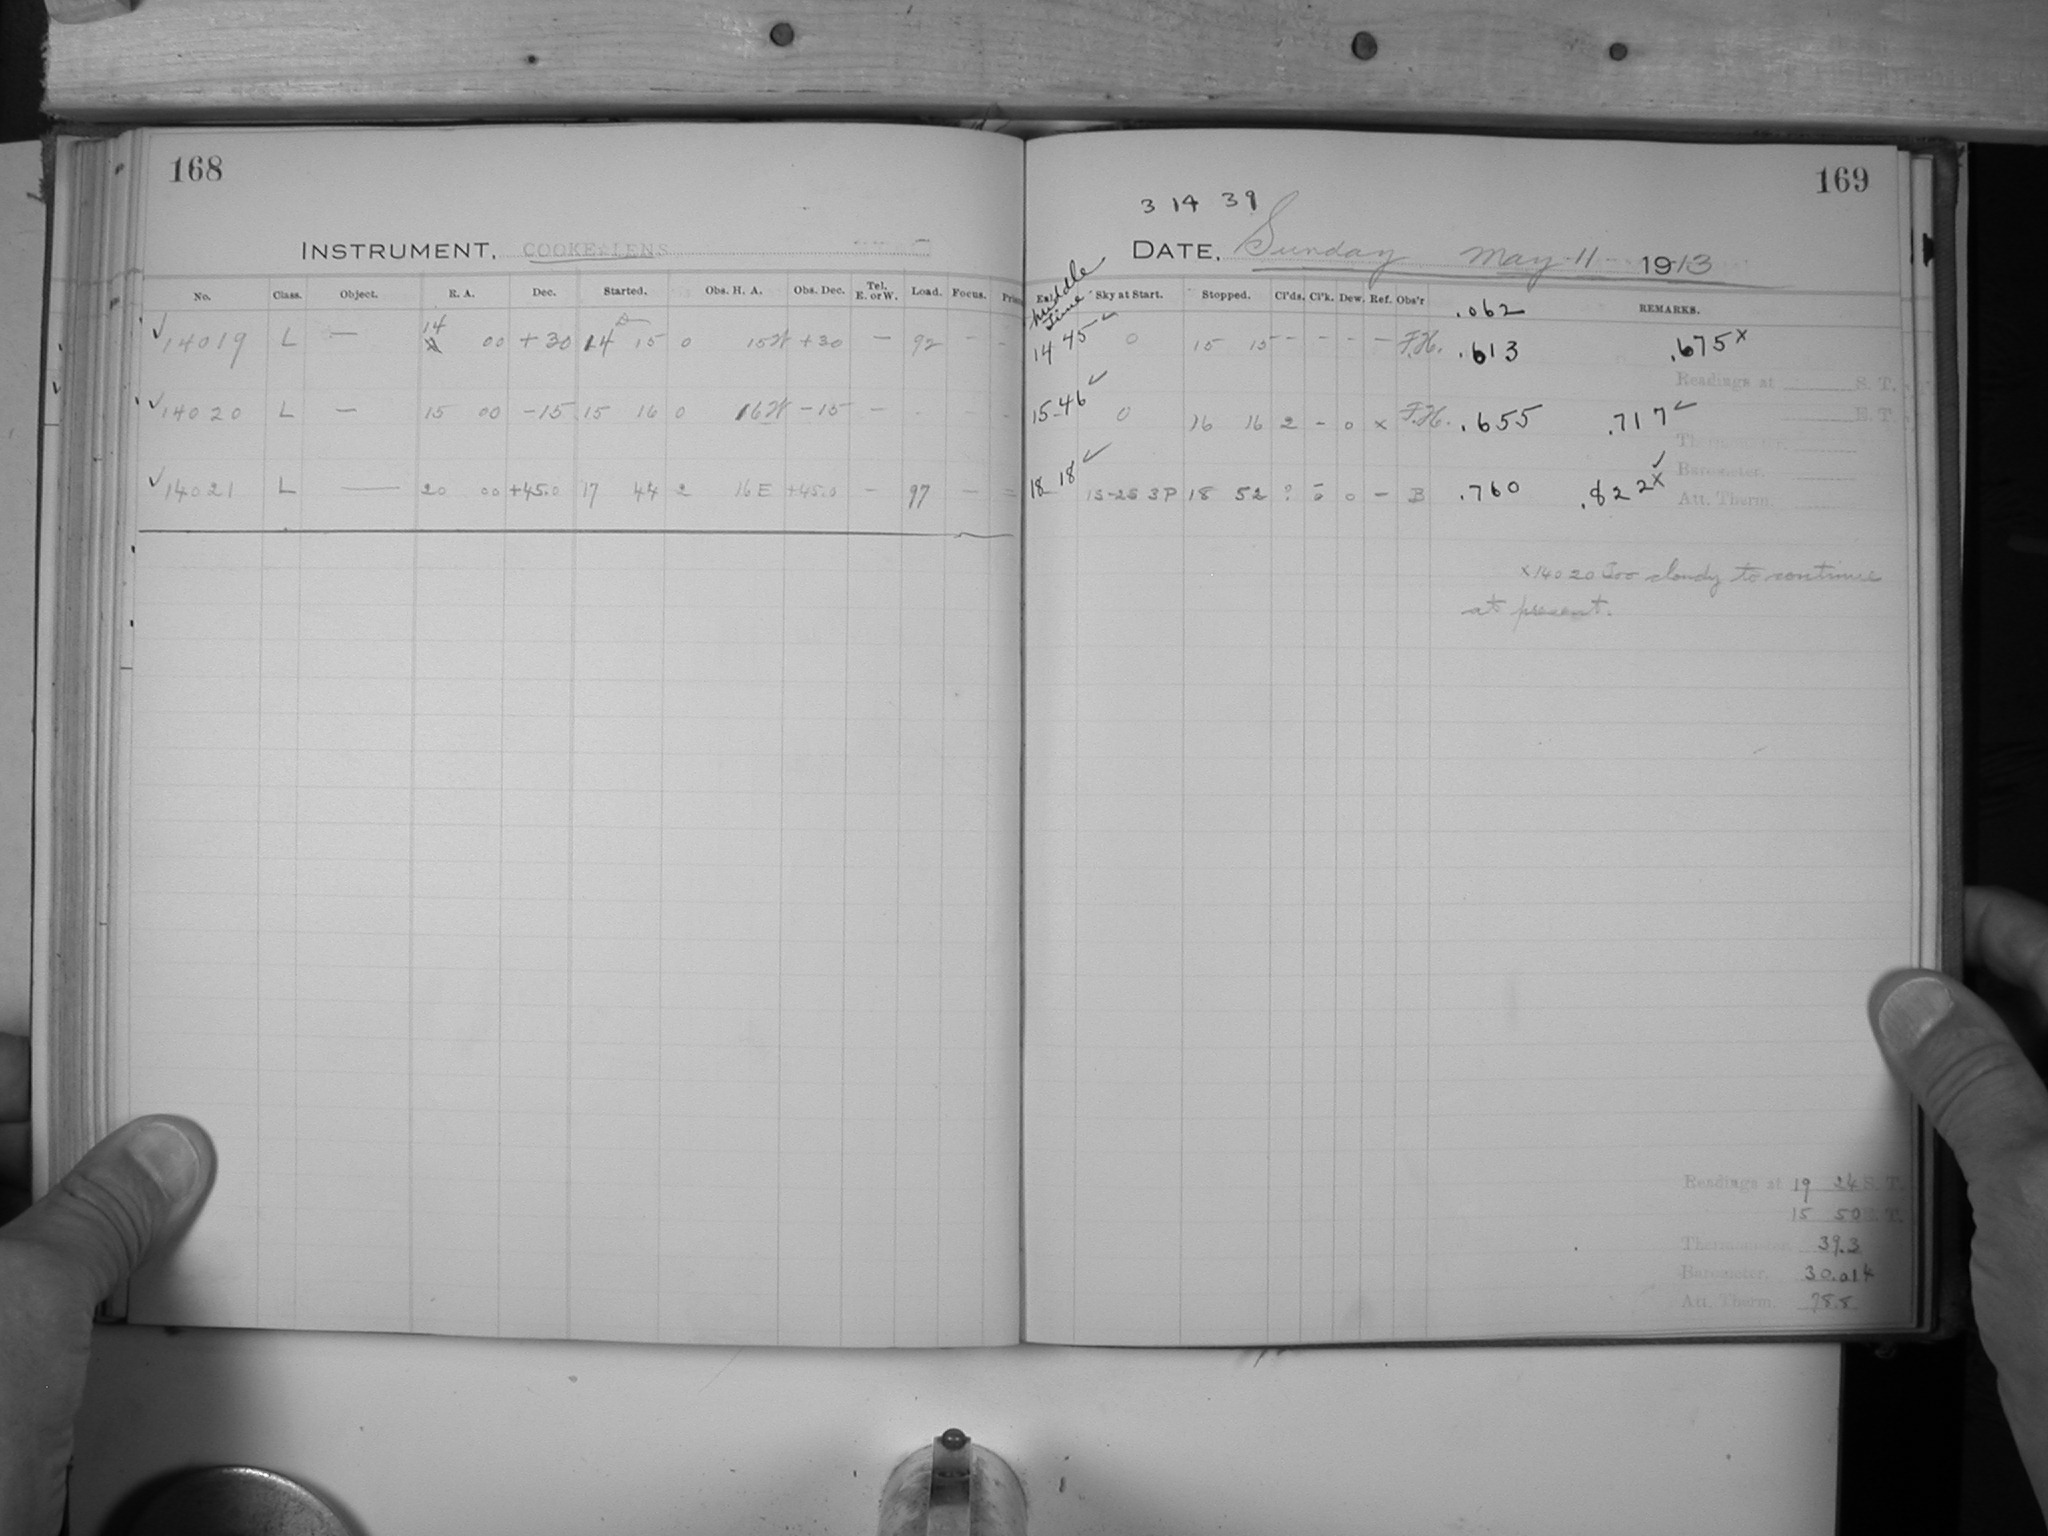 168
INSTRUMENT, COOKE LENS
No. Class. Object. R. A. Dec. Started. Obs. H. A. Obs. Dec. Tel. E. or W. Load. Focus.
14019 L — 14 00 +30 14 15 0 15W +30 — 92 - -
14020 L — 15 00 -15 15 16 0 16W -15 — - - -
14021 L — 20 00 +45.0 17 44 2 16E +45.0 - 97 -
169
3 14 39
DATE, Sunday May 11 1913
Middle Time Sky at Start. Stopped. Cl'ds. Cl'k. Dew. Ref. Obs'r .062 REMARKS.
14 45 0 15 15 - - - - F.H. .613 .675 x
Readings at S. T.
15-46 0 16 16 2 - 0 x F.H. .655 .717
E. T.
Thermometer.
Barometer.
18 18 3P 18 52 ? 0 - B .760 .822 x
Att. Therm.
x14020 Too cloudy to continue
at present.
Readings at 19 24 S. T.
15 50 E. T.
Thermometer. 39.3
Barometer. 30.014
Att. Therm.